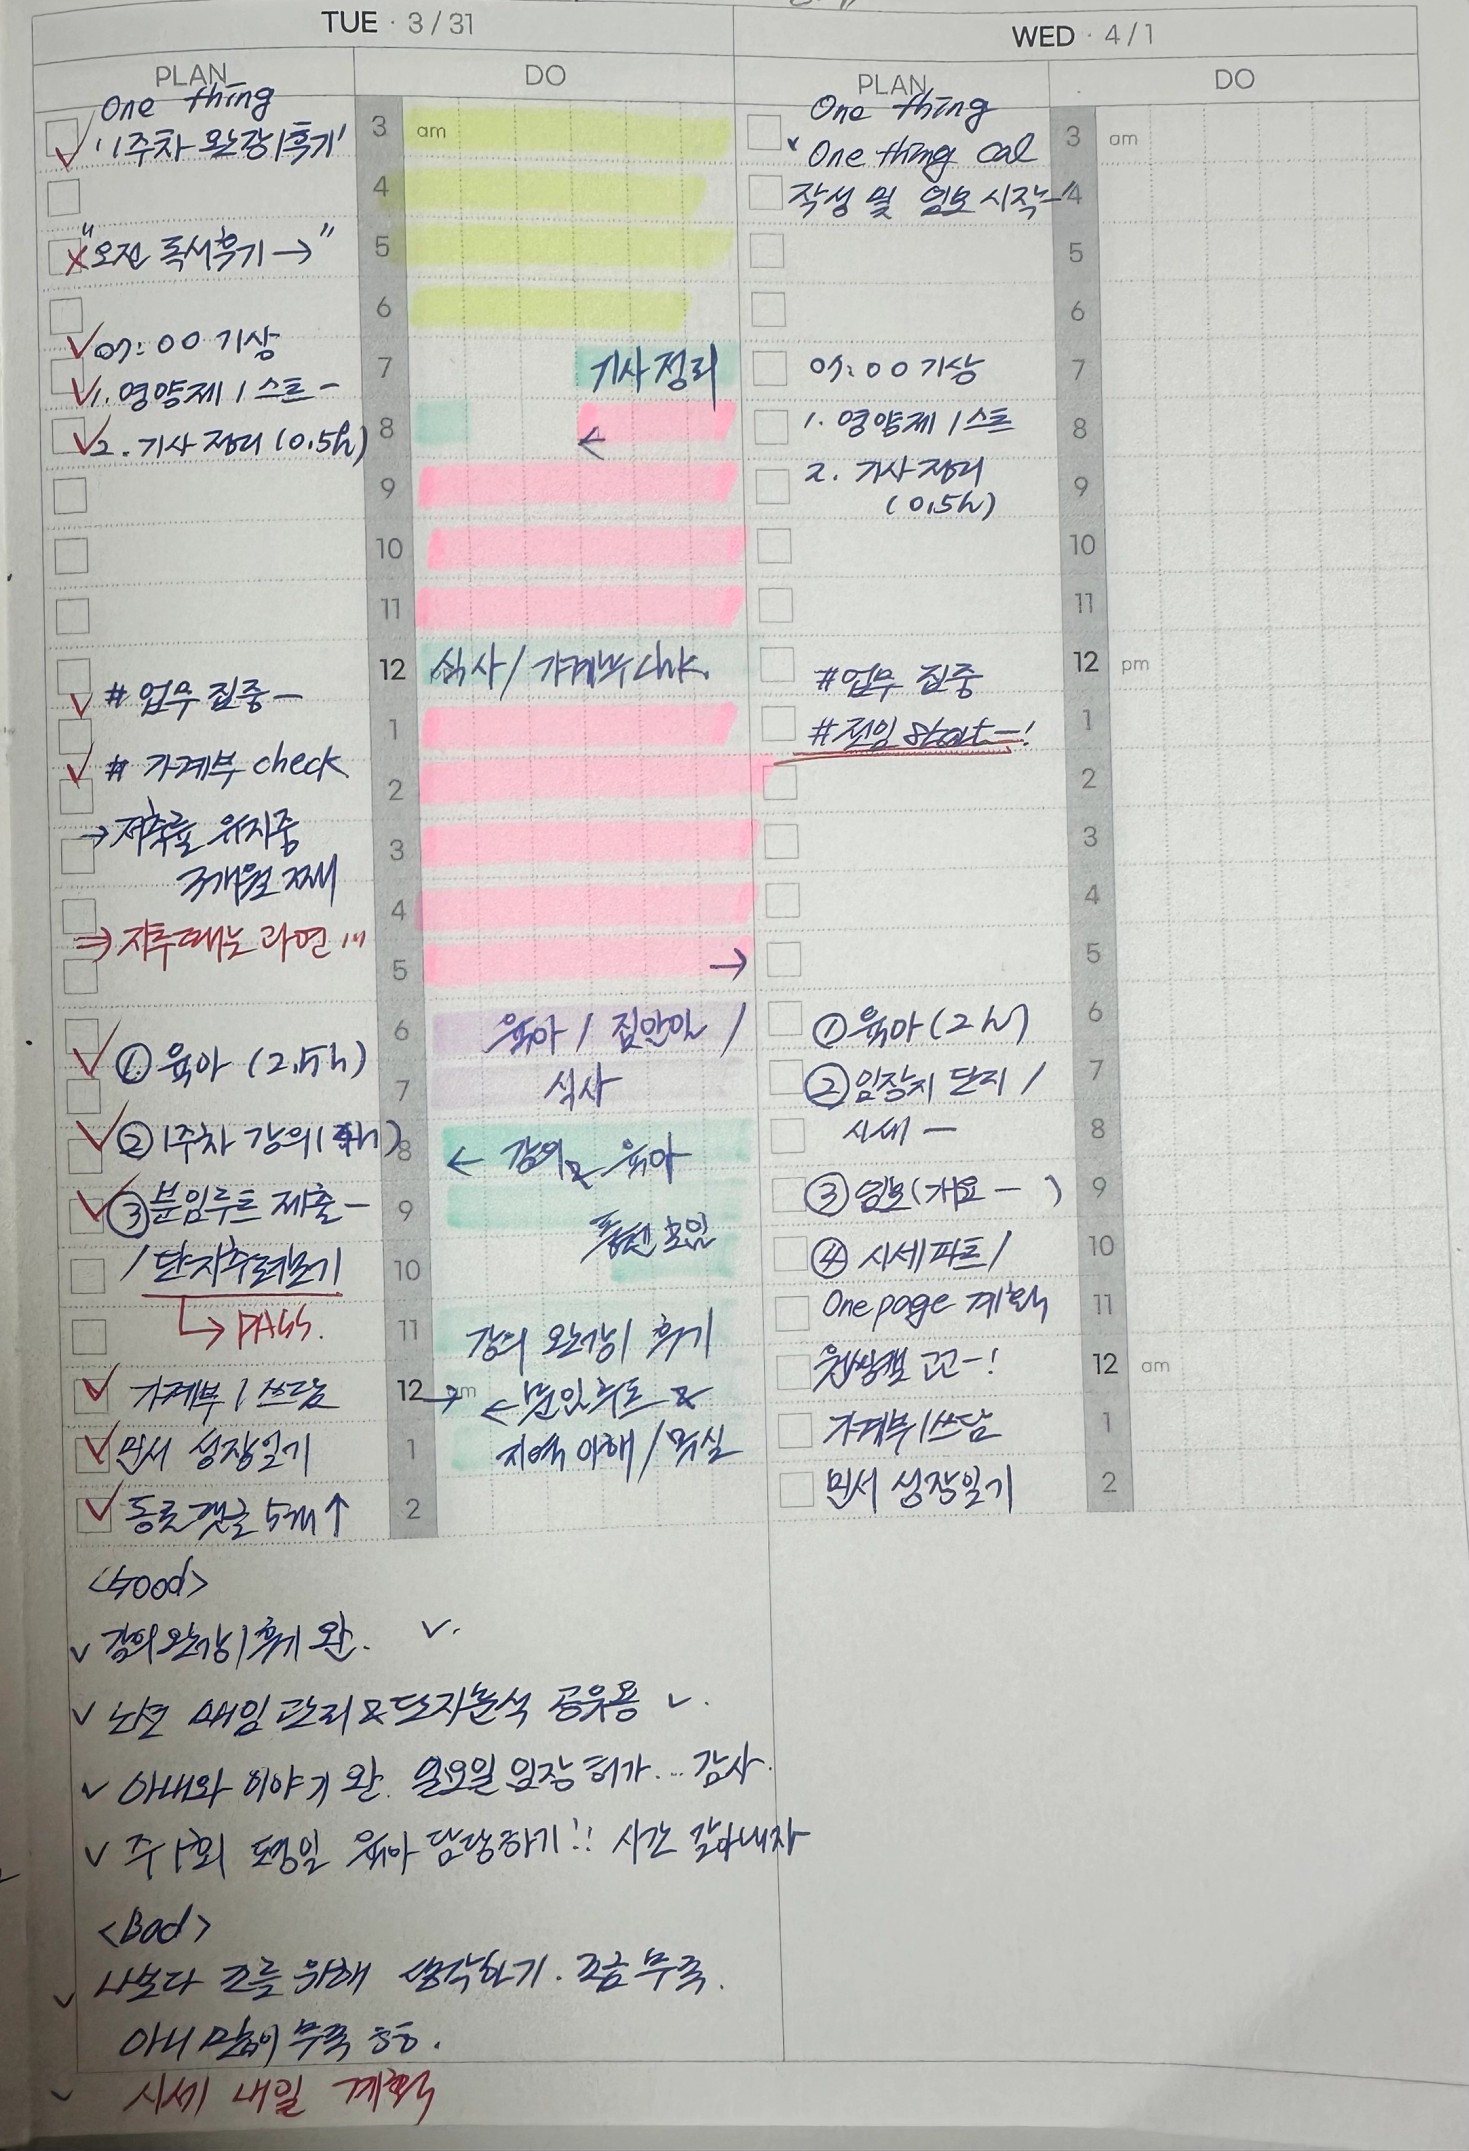 TUE · 3/31
PLAN
DO
One thing
"1주차 완강/후기"
"오전 독서후기→"
07:00 기상
1. 영양제/스트-
2. 기사정리 (0.5h)
#업무 집중-
# 가계부 check
→ 저축률 유지중
3개월 째
⇒ 지투때는 과연 ...
① 육아 (2.5h)
② 1주차 강의
③ 분임루트 제출-
/단지추려보기
↳ PASS.
가계부/쓰담
민서 성장일기
동료 댓글 5개↑
3 am
4
5
6
7 기사정리
8 ←
9
10
11
12 식사/가계부 chk.
1
2
3
4
5 →
6 육아/집안일/
7 식사
8 ← 강의 & 육아
9 튜터 모임
10
11 강의 완강/후기
12 am → ← 분임루트 &
1 지역이해/목실
2
<Good>
✓ 강의완강/후기 완. ✓.
✓ 매임관리&단지분석 공유용 ✓.
✓ 아내와 이야기 완. 일요일 임장 허가... 감사.
✓ 주 1회 평일 육아 담당하기!! 시간 갈아내자
<Bad>
✓ 나보다 조를 위해 생각하기. 조금 부족.
아니 많이 부족 흐흐.
✓ 시세 내일 계획
WED · 4/1
PLAN
DO
One thing
"One thing cal
작성 및 임보 시작-"
07:00 기상
1. 영양제/스트
2. 기사정리
(0.5h)
#업무 집중
#전임 start-!
① 육아 (2h)
② 임장지 단지/
시세 -
③ 임보(개요- )
④ 시세파트/
One page 계획
원씽캘 고고-!
가계부/쓰담
민서 성장일기
3 am
4
5
6
7
8
9
10
11
12 pm
1
2
3
4
5
6
7
8
9
10
11
12 am
1
2